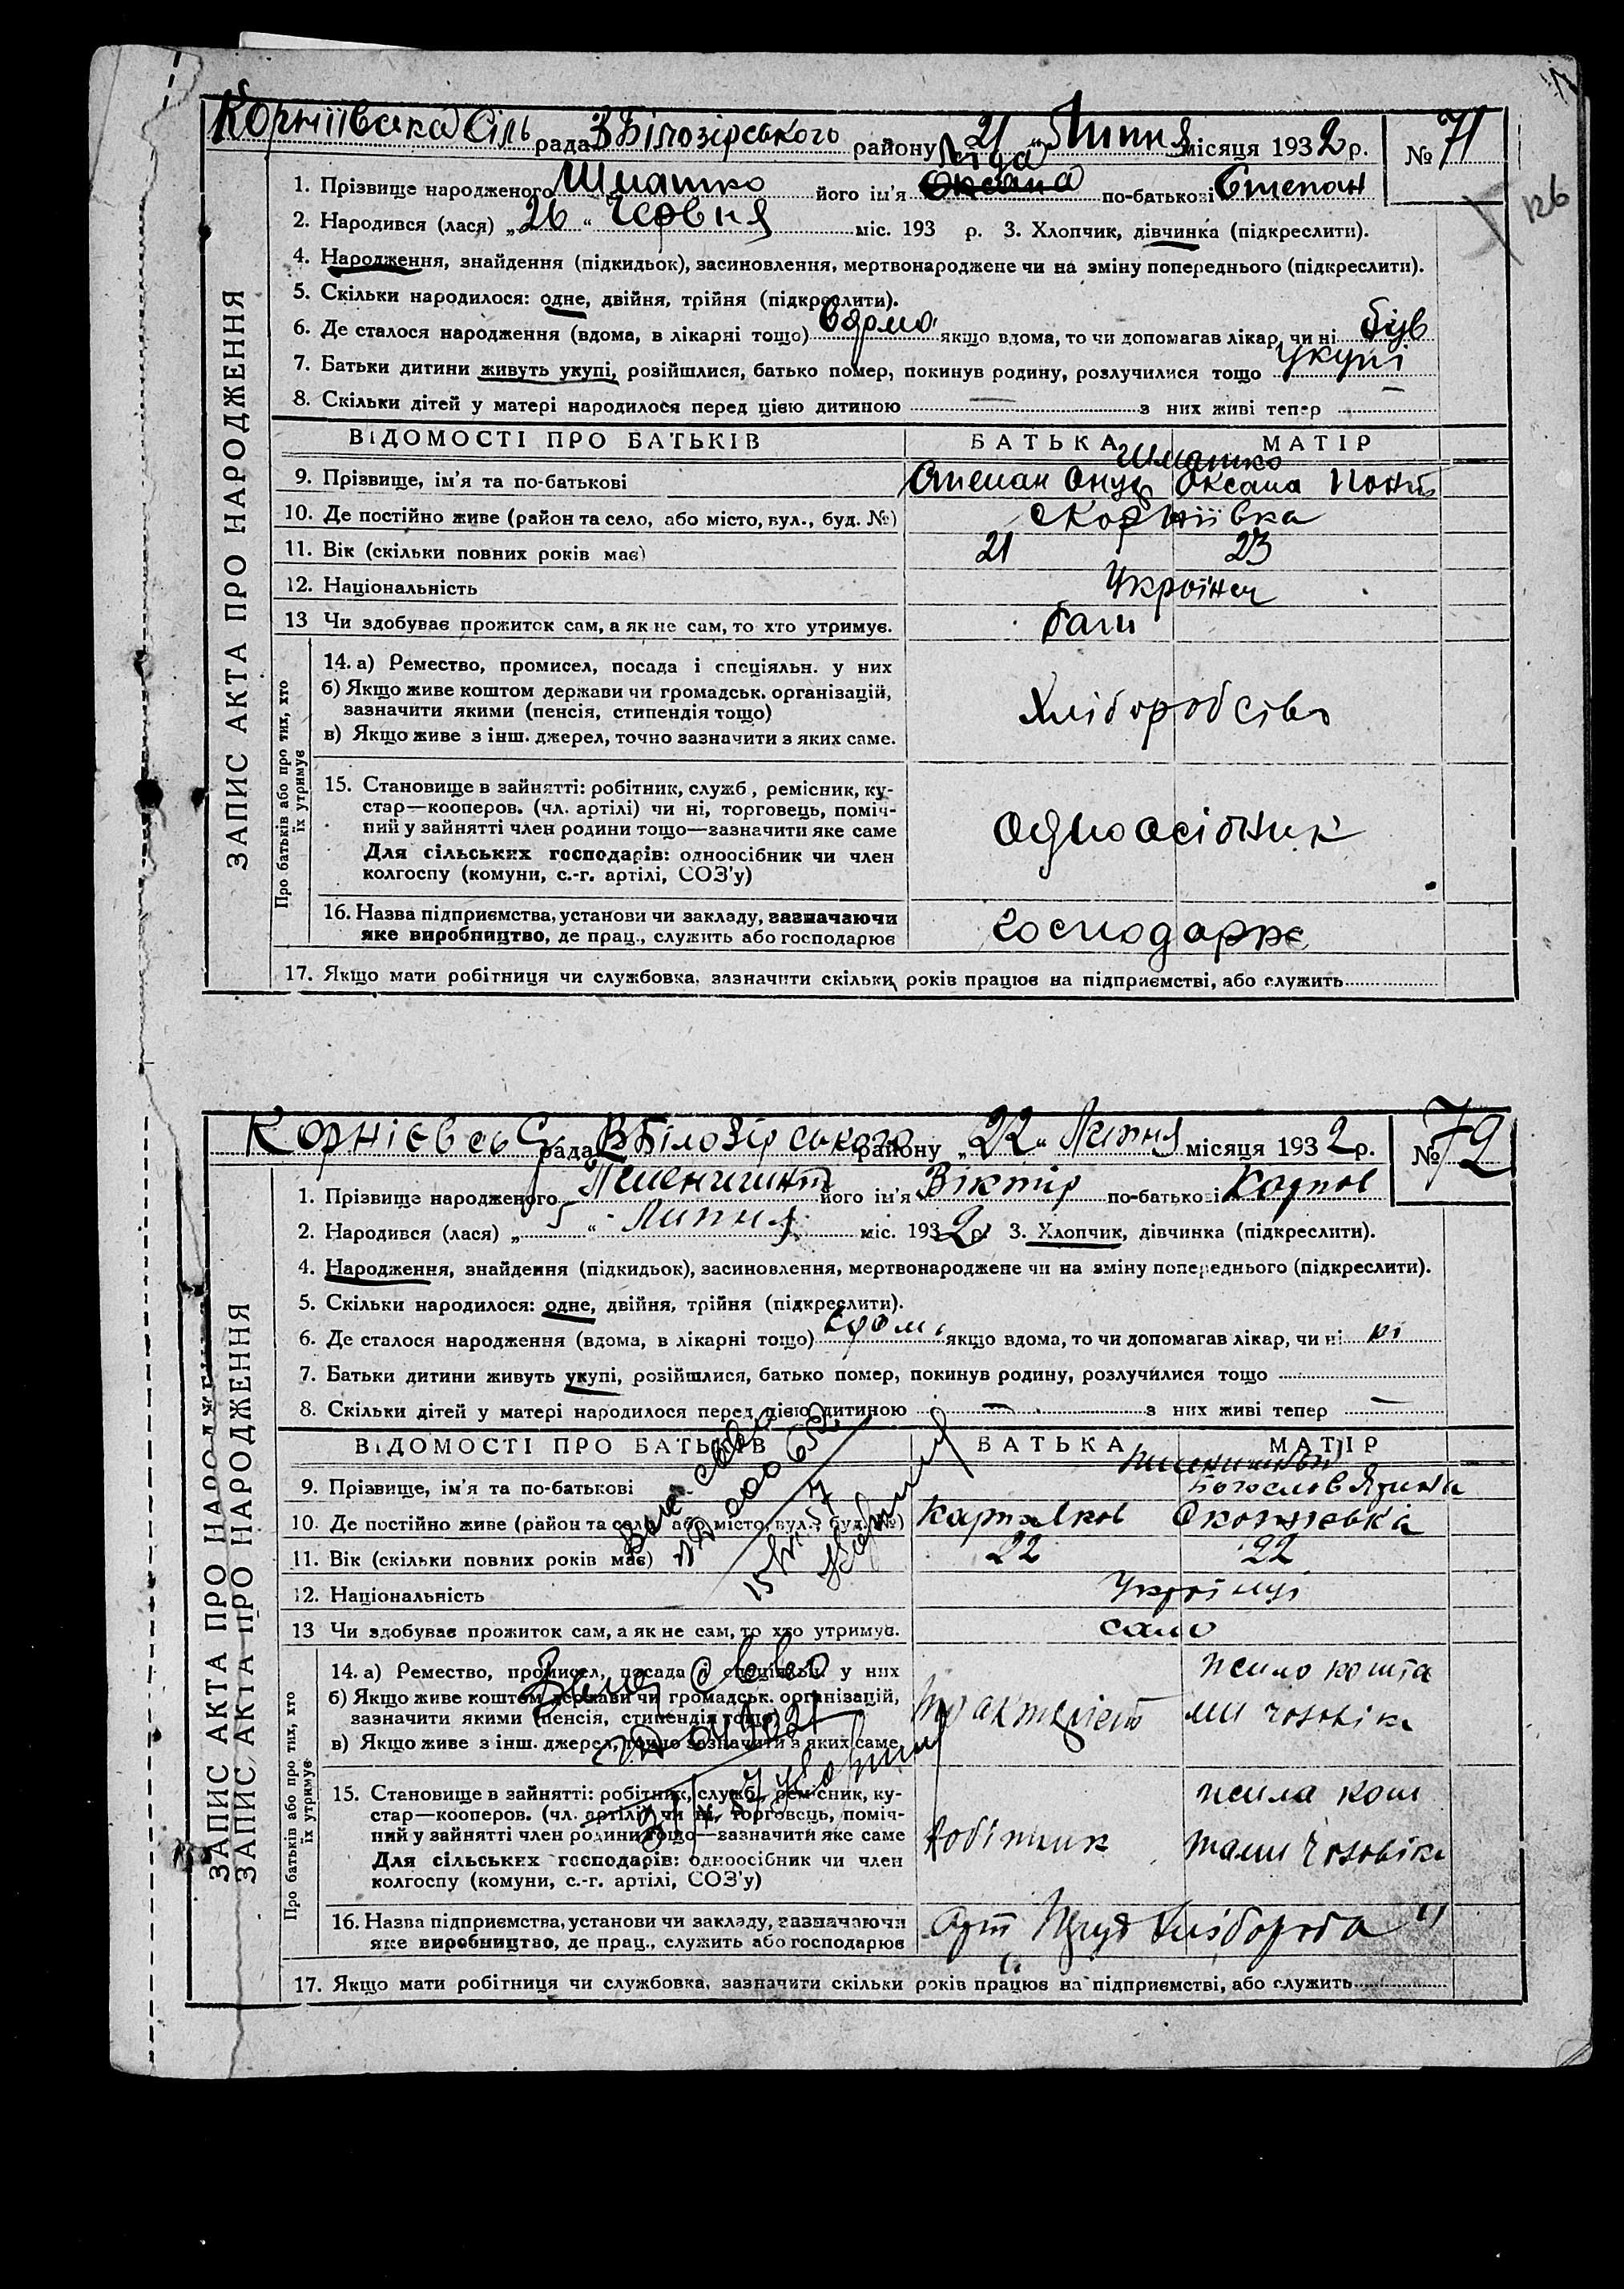 Корніївска Сіль рада В Білозірського району „21“ Липня місяця 1932 р. № 71
126
ЗАПИС АКТА ПРО НАРОДЖЕННЯ
1. Прізвище народженого Шматко його ім'я Оксана Ліда по-батькові Степан
2. Народився (лася) „26“ Червня міс. 193 р. 3. Хлопчик, дівчинка (підкреслити).
4. Народження, знайдення (підкидьок), засиновлення, мертвонароджене чи на зміну попереднього (підкреслити).
5. Скільки народилося: одне, двійня, трійня (підкреслити).
6. Де сталося народження (вдома, в лікарні тощо) вдома якщо вдома, то чи допомагав лікар, чи ні був
7. Батьки дитини живуть укупі, розійшлися, батько помер, покинув родину, розлучилися тощо укупі
8. Скільки дітей у матері народилося перед цією дитиною — з них живі тепер —
ВІДОМОСТІ ПРО БАТЬКІВ БАТЬКА МАТІР
Шматко
9. Прізвище, ім'я та по-батькові Степан Онуф Оксана
10. Де постійно живе (район та село, або місто, вул., буд. №) с Корніївка
11. Вік (скільки повних років має) 21 23
12. Національність Українці
13 Чи здобував прожиток сам, а як не сам, то хто утримує.
Про батьків або про тих, хто їх утримує
14. а) Ремество, промисел, посада і спеціяльн. у них
б) Якщо живе коштом держави чи громадськ. організацій,
зазначити якими (пенсія, стипендія тощо)
Хліборобство
в) Якщо живе з інш. джерел, точно зазначити з яких саме.
15. Становище в зайнятті: робітник, служб., ремісник, ку-
стар—кооперов. (чл. артілі) чи ні, торговець, поміч-
ний у зайнятті член родини тощо—зазначити яке саме
одноосібник
Для сільських господарів: одноосібник чи член
колгоспу (комуни, с.-г. артілі, СОЗ'у)
16. Назва підприємства, установи чи закладу, зазначаючи
яке виробництво, де прац., служить або господарює господарює
17. Якщо мати робітниця чи службовка, зазначити скільки років працює на підприємстві, або служить
Корнієвсь С рада В Білозірського району „22“ Липня місяця 1932 р. № 72
ЗАПИС АКТА ПРО НАРОДЖЕННЯ
ЗАПИС АКТА ПРО НАРОДЖЕННЯ
1. Прізвище народженого його ім'я Віктір по-батькові Карпов
2. Народився (лася) „5“ Липня міс. 1932 р. 3. Хлопчик, дівчинка (підкреслити).
4. Народження, знайдення (підкидьок), засиновлення, мертвонароджене чи на зміну попереднього (підкреслити).
5. Скільки народилося: одне, двійня, трійня (підкреслити).
6. Де сталося народження (вдома, в лікарні тощо) вдома якщо вдома, то чи допомагав лікар, чи ні ні
7. Батьки дитини живуть укупі, розійшлися, батько помер, покинув родину, розлучилися тощо
8. Скільки дітей у матері народилося перед цією дитиною — з них живі тепер —
ВІДОМОСТІ ПРО БАТЬКІВ БАТЬКА МАТІР
9. Прізвище, ім'я та по-батькові
10. Де постійно живе (район та село, або місто, вул., буд. №)
11. Вік (скільки повних років має) 22 22
12. Національність Українці
13 Чи здобував прожиток сам, а як не сам, то хто утримує. само
Про батьків або про тих, хто їх утримує
14. а) Ремество, промисел, посада і спеціяльн. у них
б) Якщо живе коштом держави чи громадськ. організацій,
зазначити якими (пенсія, стипендія тощо)
тракторіст жило кошта ми чоловіка
в) Якщо живе з інш. джерел, точно зазначити з яких саме.
15. Становище в зайнятті: робітник, служб., ремісник, ку-
стар—кооперов. (чл. артілі) чи ні, торговець, поміч-
ний у зайнятті член родини тощо—зазначити яке саме
робітник жила кош тами чоловіка
Для сільських господарів: одноосібник чи член
колгоспу (комуни, с.-г. артілі, СОЗ'у)
16. Назва підприємства, установи чи закладу, зазначаючи
яке виробництво, де прац., служить або господарює Арт Хлібороба
17. Якщо мати робітниця чи службовка, зазначити скільки років працює на підприємстві, або служить